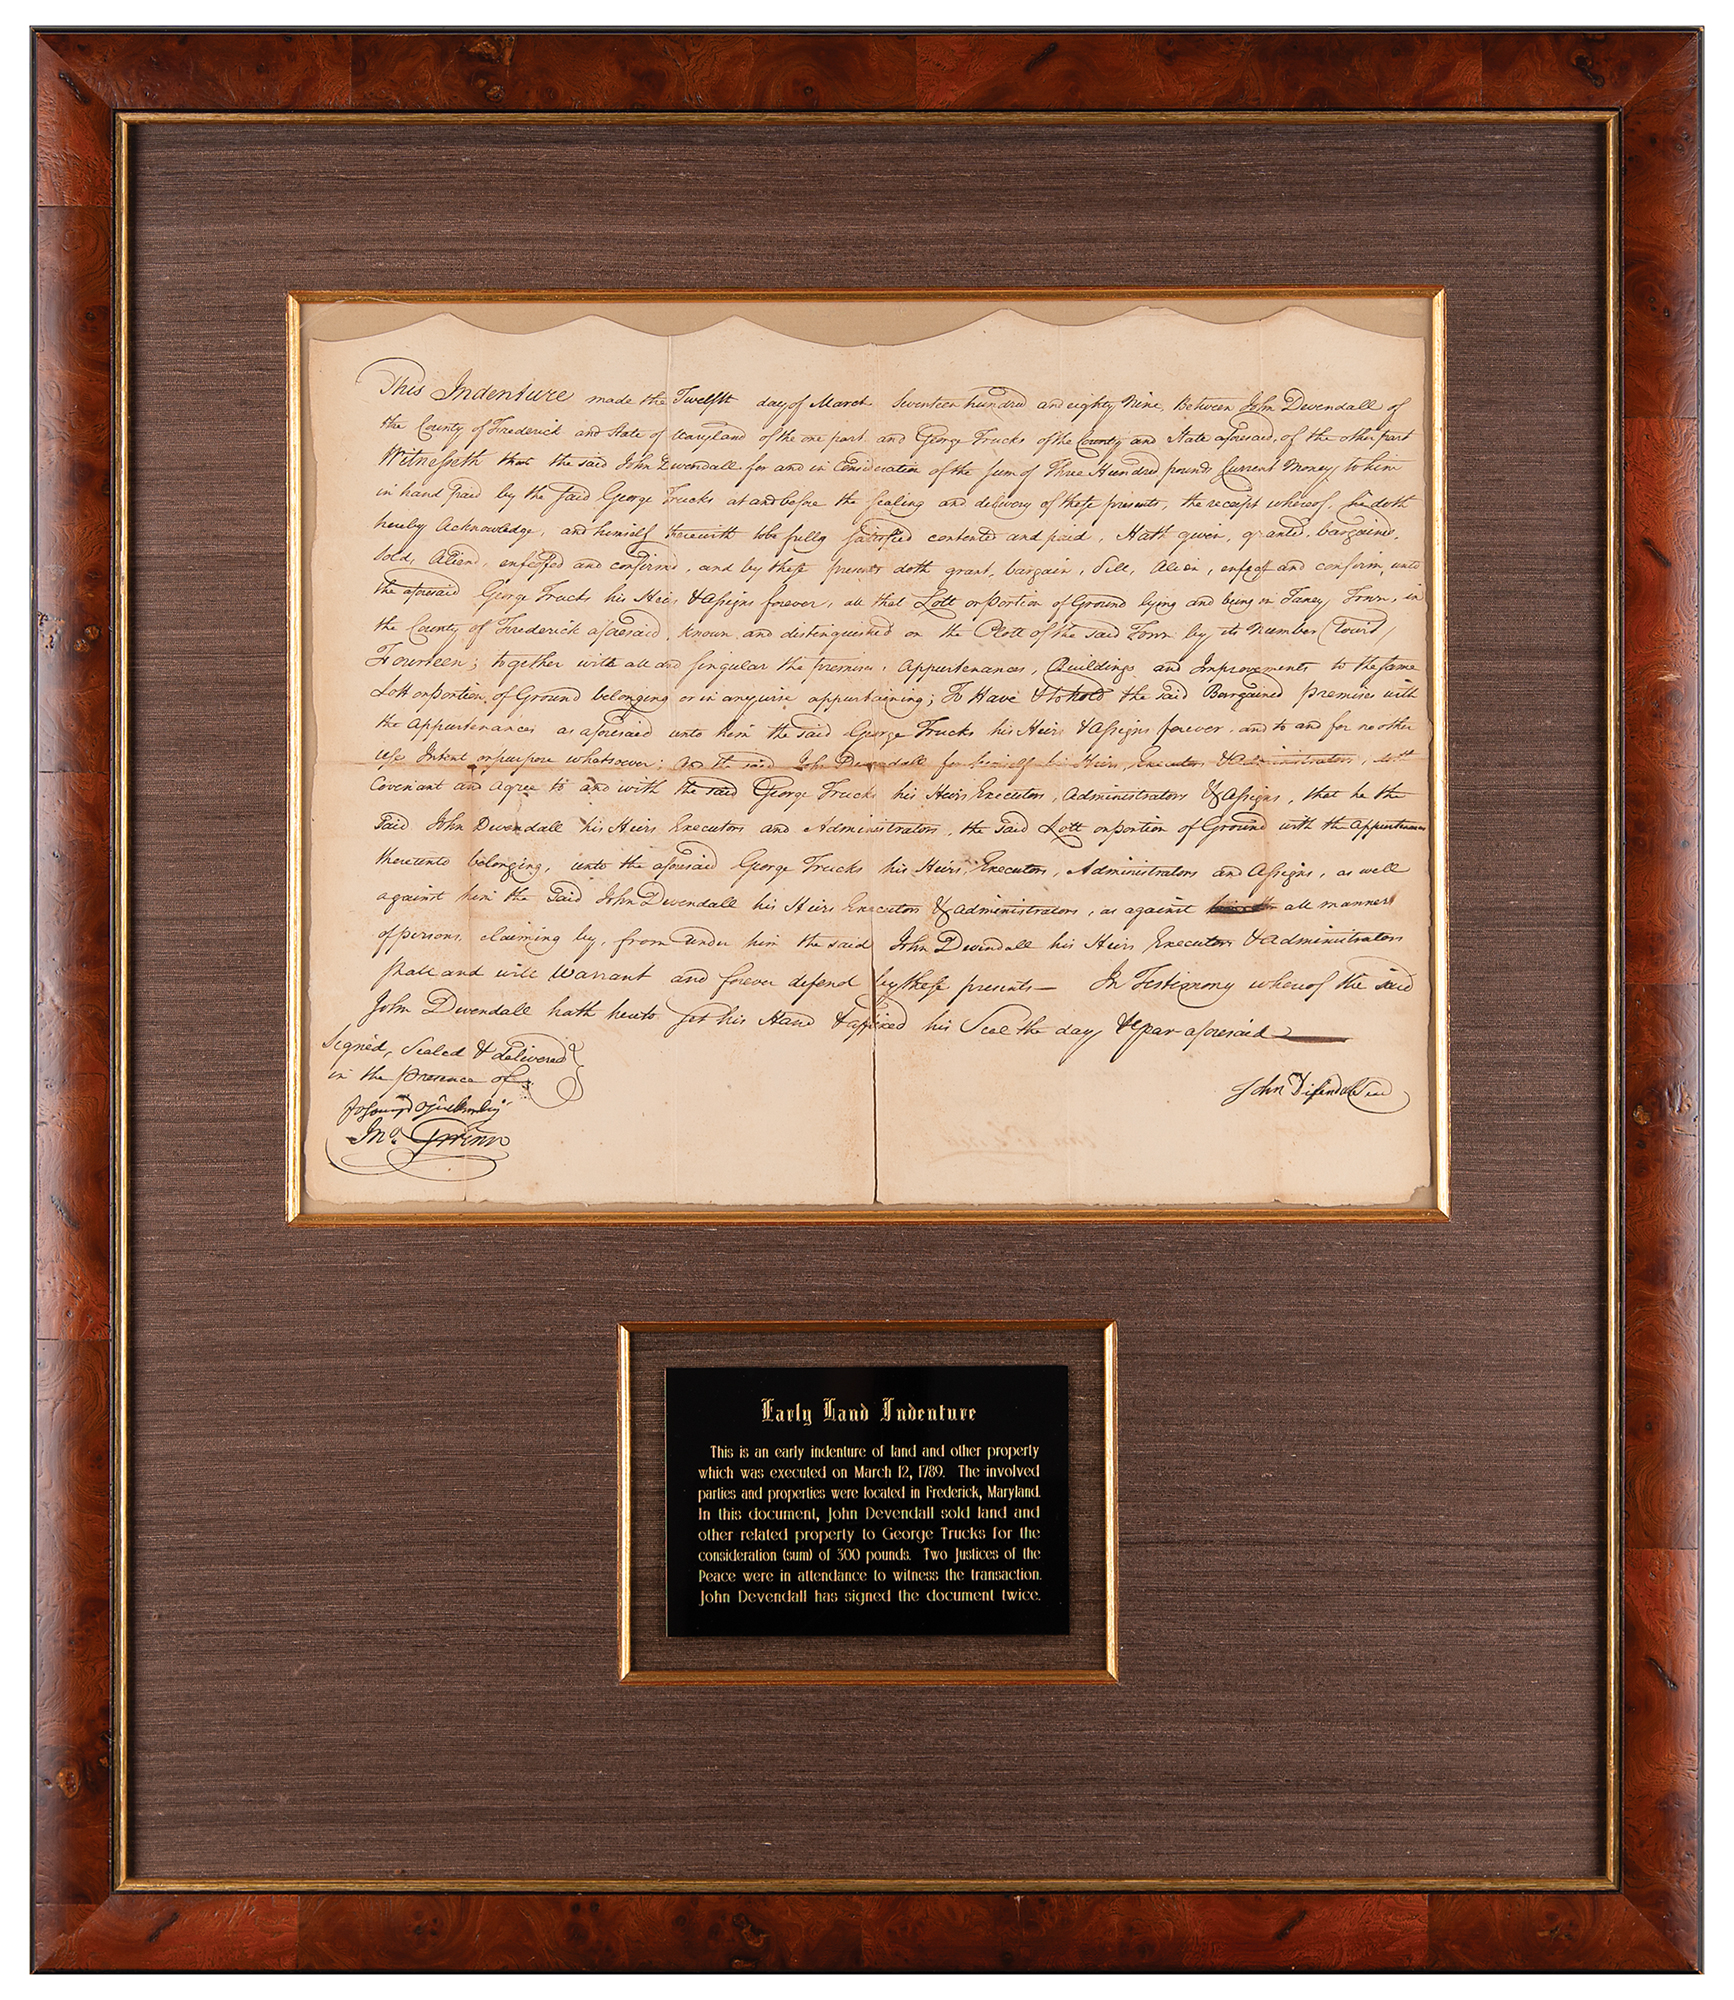 This Indenture made the Twelfth day of March Seventeen hundred and eighty Nine, Between John Devendall of
the County of Frederick and State of Maryland of the one part and George Trucks of the County and State aforesaid, of the other part
Witnesseth that the said John Devendall for and in Consideration of the sum of Three Hundred pounds Current Money to him
in hand paid by the said George Trucks at and before the sealing and delivery of these presents, the receipt whereof he doth
hereby Acknowledge, and himself therewith to be fully satisfied contented and paid, Hath given, granted, bargained,
sold, Aliend, enfeoffed and confirmd, and by these presents doth grant, bargain, Sell, Alien, enfeoff and confirm, unto
the aforesaid George Trucks his Heirs & Assigns forever, all that Lott or Portion of Ground lying and being in Taney Town, in
the County of Frederick aforesaid, known and distinguished on the Plott of the said Town by its Number
Fourteen; together with all and singular the premises, Appurtenances, Buildings and Improvements to the same
Lott or portion of Ground belonging or in anywise appurtaining; To Have & to hold the said Bargained premises with
the Appurtenances as aforesaid unto him the said George Trucks his Heirs & Assigns forever, and to and for no other
use Intent or purpose whatsoever: And the said John Devendall for himself his Heirs, Executors, & Administrators, doth
Covenant and Agree to and with the said George Trucks his Heirs, Executors, Administrators & Assigns, that he the
said John Devendall his Heirs Executors and Administrators, the said Lott or portion of Ground with the Appurtenances
thereunto belonging, unto the aforesaid George Trucks his Heirs, Executors, Administrators and Assigns, as well
against him the said John Devendall his Heirs Executors & Administrators, as against all manner
of persons, claiming by, from under him the said John Devendall his Heirs Executors & Administrators
shall and will Warrant and forever defend by these presents— In Testimony whereof the said
John Devendall hath hereto set his Hand & affixed his Seal the day & year aforesaid
Signed, Sealed & delivered
in the presence of
Jno. Gwinn
John
Early Land Indenture
This is an early indenture of land and other property
which was executed on March 12, 1789. The involved
parties and properties were located in Frederick, Maryland.
In this document, John Devendall sold land and
other related property to George Trucks for the
consideration (sum) of 300 pounds. Two Justices of the
Peace were in attendance to witness the transaction.
John Devendall has signed the document twice.